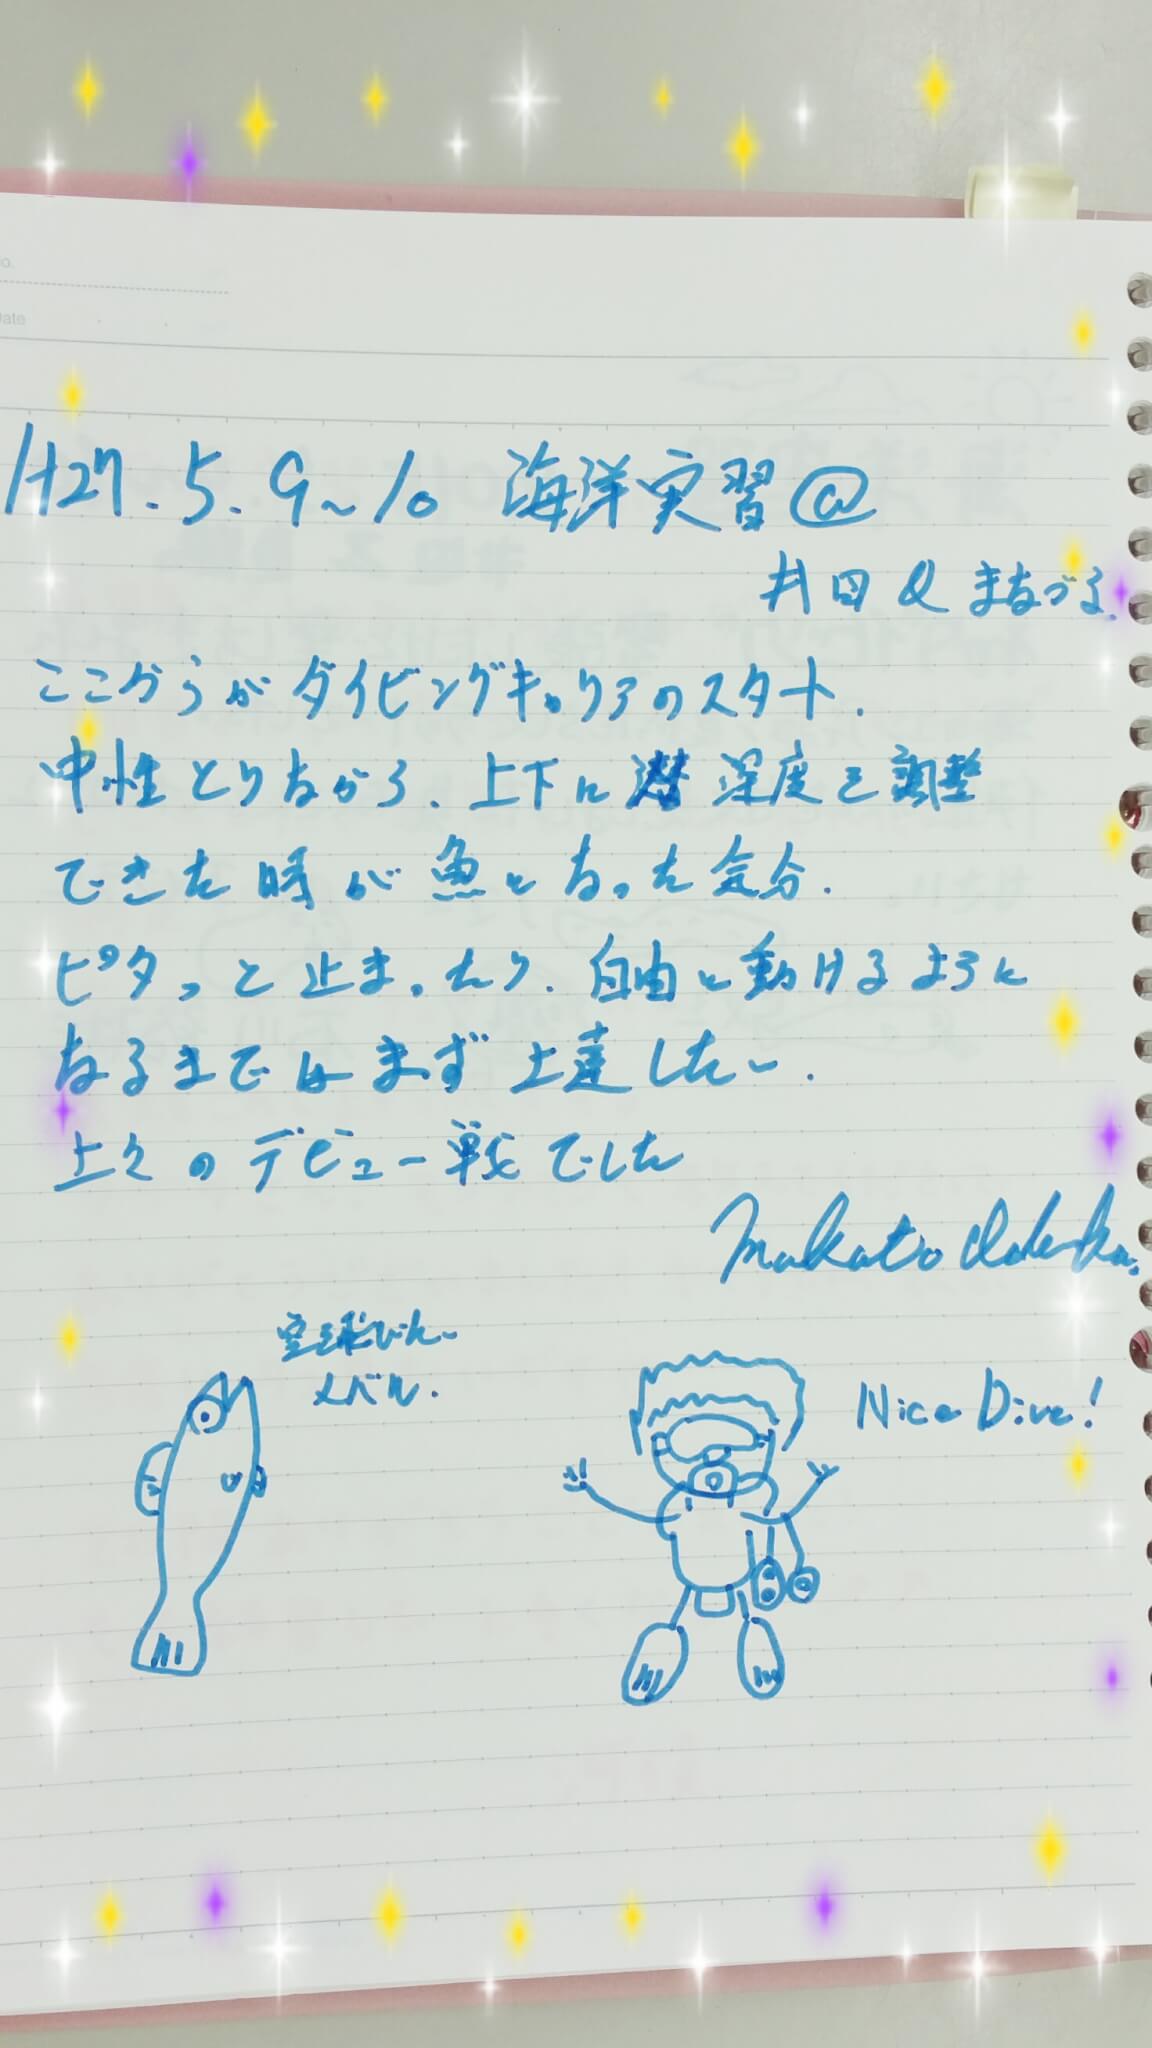 No.
Date
H27.5.9~10 海洋実習@
井田&まなづる.
ここからがダイビングキャリアのスタート.
中性とりながら、上下に 深度を調整
できた時が魚となった気分.
ピタっと止まったり、自由に動けるように
なるまではまず上達したい.
上々のデビュー戦でした
Makato
メバル.
Nice Dive!